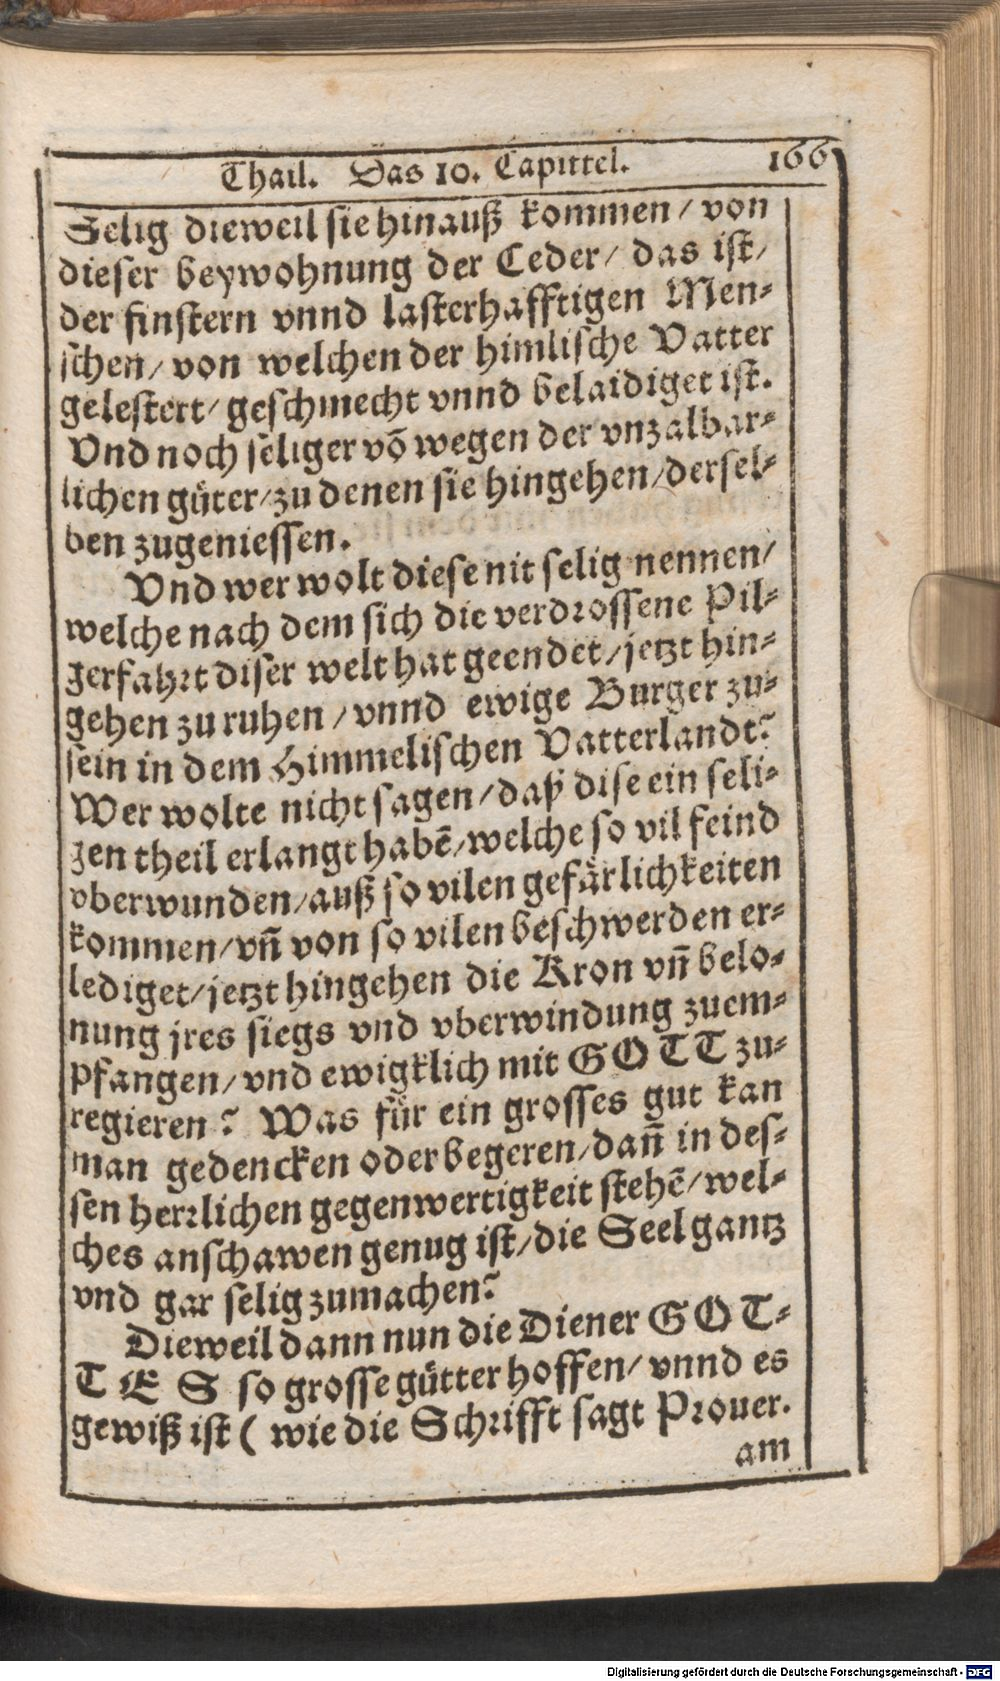 Thail. Das 10. Capittel. 166
Selig dieweil sie hinauß kommen / von
dieser beywohnung der Ceder / das ist /
der finstern vnnd lasterhafftigen Men-
schen / von welchen der himlische Vatter
gelestert / geschmecht vnnd belaidiget ist.
Vnd noch seliger vō wegen der vnzalbar-
lichen güter / zu denen sie hingehen / dersel-
ben zugeniessen.
Vnd wer wolt diese nit selig nennen /
welche nach dem sich die verdrossene Pil-
gerfahrt diser welt hat geendet / jetzt hin-
gehen zu ruhen / vnnd ewige Burger zu-
sein in dem Himmelischen Vatterlandt?
Wer wolte nicht sagen / daß dise ein seli-
gen theil erlangt habē / welche so vil feind
vberwunden / auß so vilen gefärlichkeiten
kommen / vn̄ von so vilen beschwerden er-
lediget / jetzt hingehen die Kron vn̄ belo-
nung jres siegs vnd vberwindung zuem-
pfangen / vnd ewigklich mit GOTT zu-
regieren? Was für ein grosses gut kan
man gedencken oder begeren / dan̄ in des-
sen herrlichen gegenwertigkeit stehē / wel-
ches anschawen genug ist / die Seel gantz
vnd gar selig zumachen?
Dieweil dann nun die Diener GOT-
TES so grosse gütter hoffen / vnnd es
gewiß ist ( wie die Schrifft sagt Prouer.
am
Digitalisierung gefördert durch die Deutsche Forschungsgemeinschaft - DFG